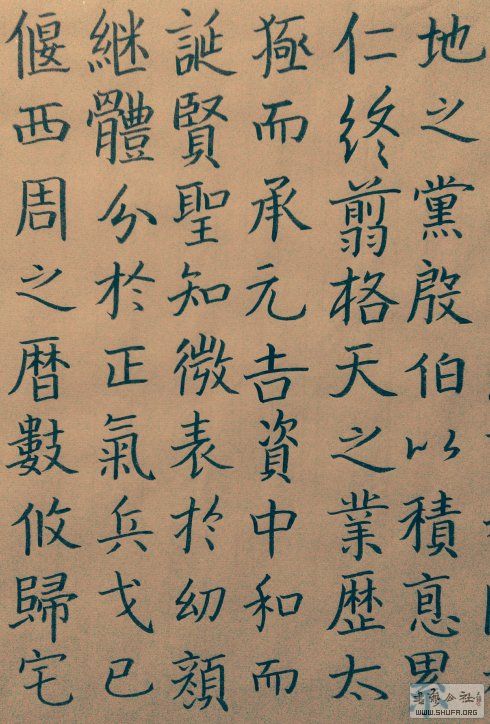 地之黨殷伯以積惪累
仁終翦格天之業歷太
極而承元吉資中和而
誕賢聖知微表於幼顏
継體分於正氣兵戈已
偃西周之暦數攸歸宅
WWW.SHUFA.ORG